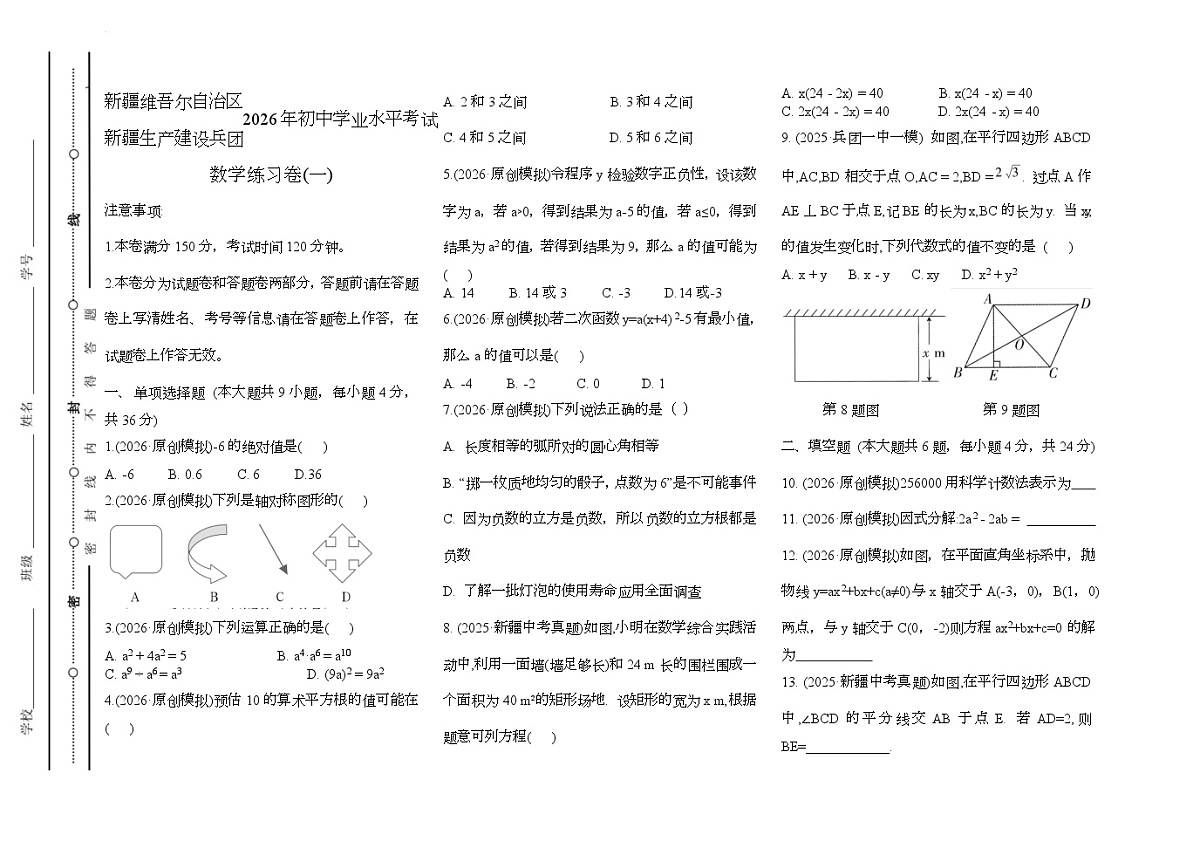 学校
班级
姓名
学号
密
封
线
密 封 线 内 不 得 答 题
新疆维吾尔自治区
2026年初中学业水平考试
新疆生产建设兵团
数学练习卷(一)
注意事项:
1.本卷满分150分，考试时间120分钟。
2.本卷分为试题卷和答题卷两部分，答题前请在答题
卷上写清姓名、考号等信息.请在答题卷上作答，在
试题卷上作答无效。
一、单项选择题 (本大题共9小题，每小题4分，
共36分)
1.(2026·原创模拟)-6的绝对值是(  )
A. -6 B. 0.6 C. 6 D.36
2.(2026·原创模拟)下列是轴对称图形的(  )
A B C D
3.(2026·原创模拟)下列运算正确的是(  )
A. a²+4a²=5 B. a⁴·a⁶=a¹⁰
C. a⁹÷a⁶=a³ D. (9a)²=9a²
4.(2026·原创模拟)预估10的算术平方根的值可能在
(  )
A. 2和3之间 B. 3和4之间
C. 4和5之间 D. 5和6之间
5.(2026·原创模拟)令程序y检验数字正负性，设该数
字为a，若a>0，得到结果为a-5的值，若a≤0，得到
结果为a²的值，若得到结果为9，那么a的值可能为
(  )
A. 14 B. 14或3 C. -3 D.14或-3
6.(2026·原创模拟)若二次函数y=a(x+4)²-5有最小值，
那么a的值可以是(  )
A. -4 B. -2 C. 0 D. 1
7.(2026·原创模拟)下列说法正确的是 ( )
A. 长度相等的弧所对的圆心角相等
B. “掷一枚质地均匀的骰子，点数为6”是不可能事件
C. 因为负数的立方是负数，所以负数的立方根都是
负数
D. 了解一批灯泡的使用寿命应用全面调查
8. (2025·新疆中考真题)如图,小明在数学综合实践活
动中,利用一面墙(墙足够长)和24 m 长的围栏围成一
个面积为40 m²的矩形场地. 设矩形的宽为x m,根据
题意可列方程(  )
A. x(24 - 2x) = 40 B. x(24 - x) = 40
C. 2x(24 - 2x) = 40 D. 2x(24 - x) = 40
9. (2025·兵团一中一模) 如图,在平行四边形ABCD
中,AC,BD相交于点O,AC=2,BD=2√3. 过点A作
AE⊥BC于点E,记BE的长为x,BC的长为y. 当x,y
的值发生变化时,下列代数式的值不变的是 (  )
A. x + y B. x - y C. xy D. x² + y²
x m
A D O B E C
第8题图 第9题图
二、填空题 (本大题共6题，每小题4分，共24分)
10. (2026·原创模拟)256000用科学计数法表示为____
11. (2026·原创模拟)因式分解:2a² - 2ab = __________
12. (2026·原创模拟)如图，在平面直角坐标系中，抛
物线y=ax²+bx+c(a≠0)与x轴交于A(-3，0)，B(1，0)
两点，与y轴交于C(0，-2)则方程ax²+bx+c=0的解
为___________
13. (2025·新疆中考真题)如图,在平行四边形ABCD
中,∠BCD 的平分线交 AB 于点 E. 若 AD=2,则
BE=____________.